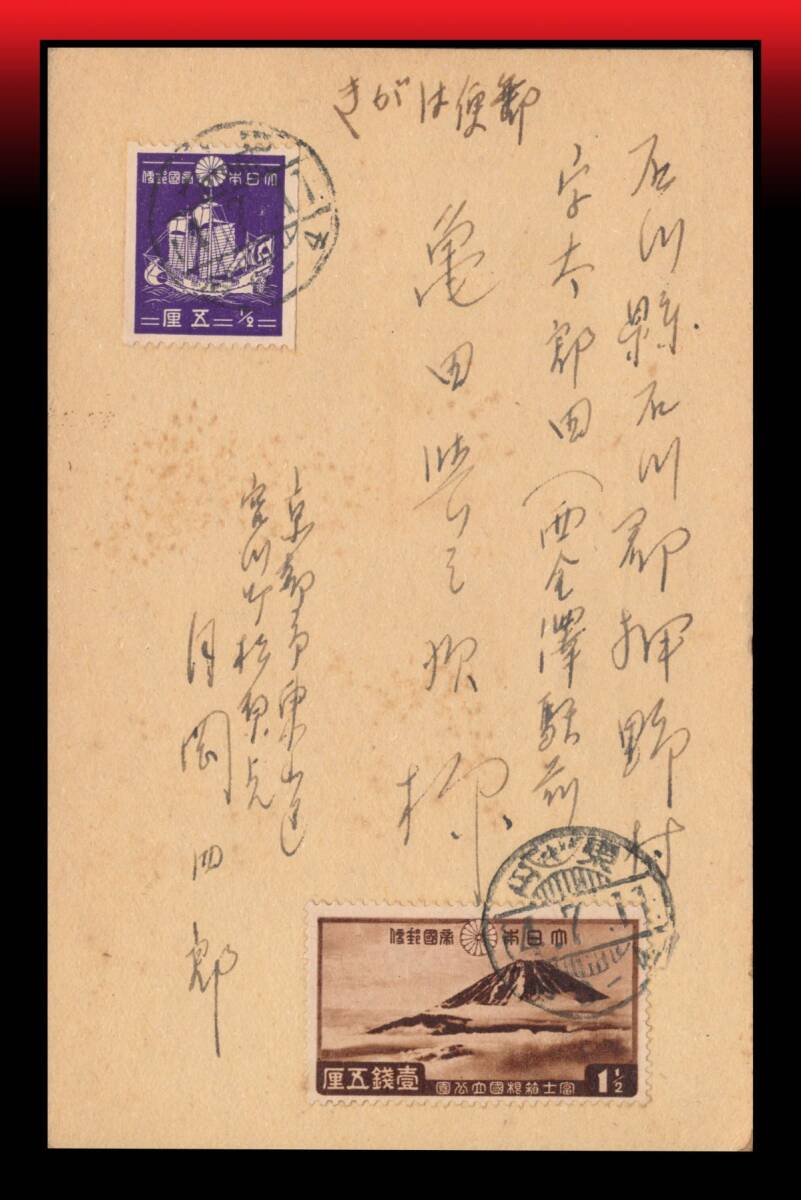 きがは便郵
石川縣石川郡押野村
字太郎田(西金澤駅前
亀田
様
京都市東山区
宮川町松原
月岡四郎
便郵國帝 本日大
厘五 ½
便郵國帝 本日大
厘五錢壹
園公立國根箱士富
1½
東山
7.11